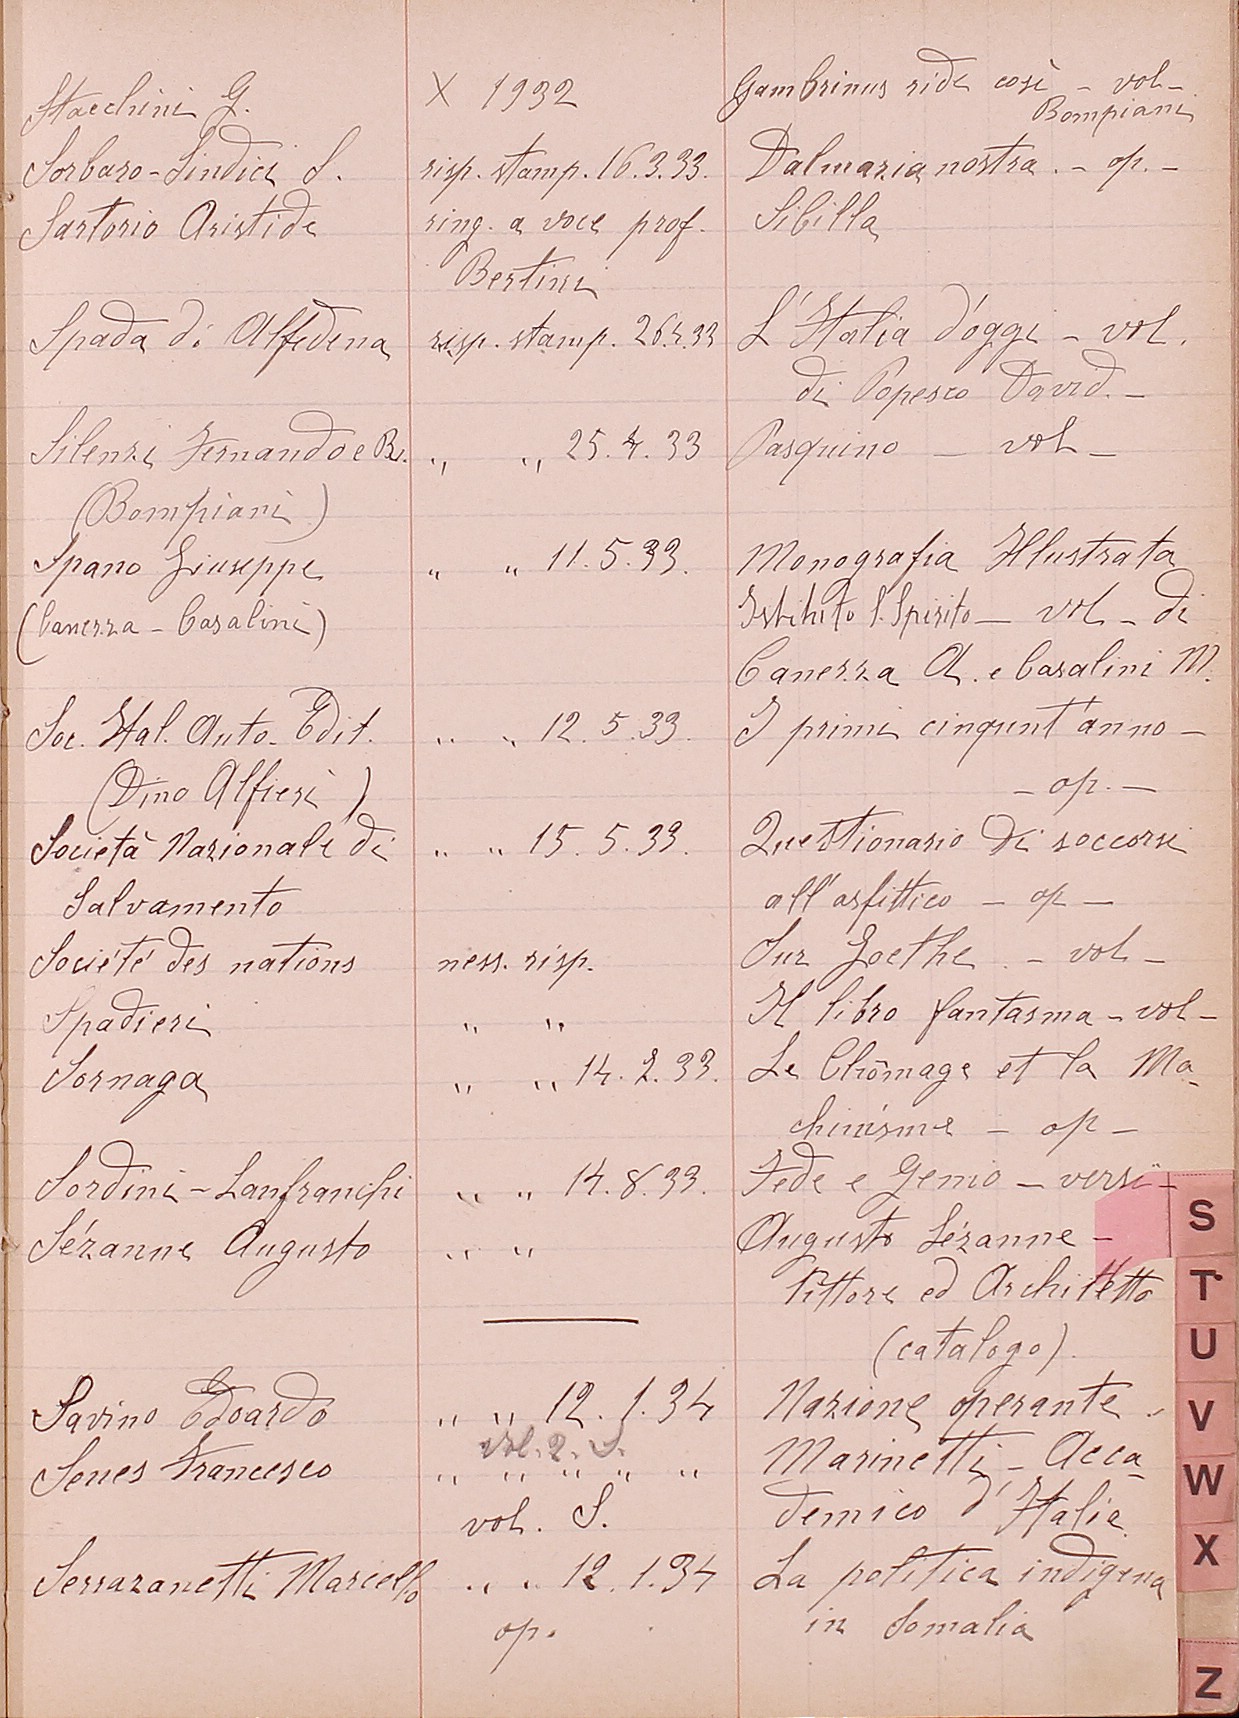 Stacchini G. X 1932 Gambrinus ride così - vol -
Bompiani
Sorbaro-Sindici S. risp. stamp. 16.3.33. Dalmazia nostra. - op. -
Sartorio Aristide ring. a voce prof. Sibilla
Bertini
Spada di Alfedena risp. stamp. 26.4.33 L'Italia d'oggi - vol.
di Popesco David. -
Silenzi Fernando e R. " " 25.4.33 Pasquino - vol -
(Bompiani)
Spano Giuseppe " " 11.5.33. Monografia Illustrata
(Canezza - Casalini) Istituto S. Spirito - vol - di
Canezza A. e Casalini M.
Soc. Ital. Auto. Edit. " " 12.5.33. I primi cinqunt'anno -
(Dino Alfieri) - op. -
Società Nazionale di " " 15.5.33. Questionario di soccorsi
Salvamento all'asfittico - op -
Société des nations ness. risp. Sur Goethe - vol -
Spadieri " " Il libro fantasma - vol -
Sornaga " " 14.2.33. Le Chômage et la Ma-
chinisme - op -
Sordini - Lanfranchi " " 14.8.33. Fede e Genio - versi -
Sézanne Augusto " " Augusto Sézanne -
Pittore ed Architetto
(catalogo).
Savino Edoardo " " 12.1.34 Nazione operante.
vol. 2. S.
Senes Francesco " " " " " Marinetti - Acca-
vol. S. demico d'Italia
Serrazanetti Marcello " " 12.1.34 La politica indigena
op. in Somalia
S
T
U
V
W
X
Z